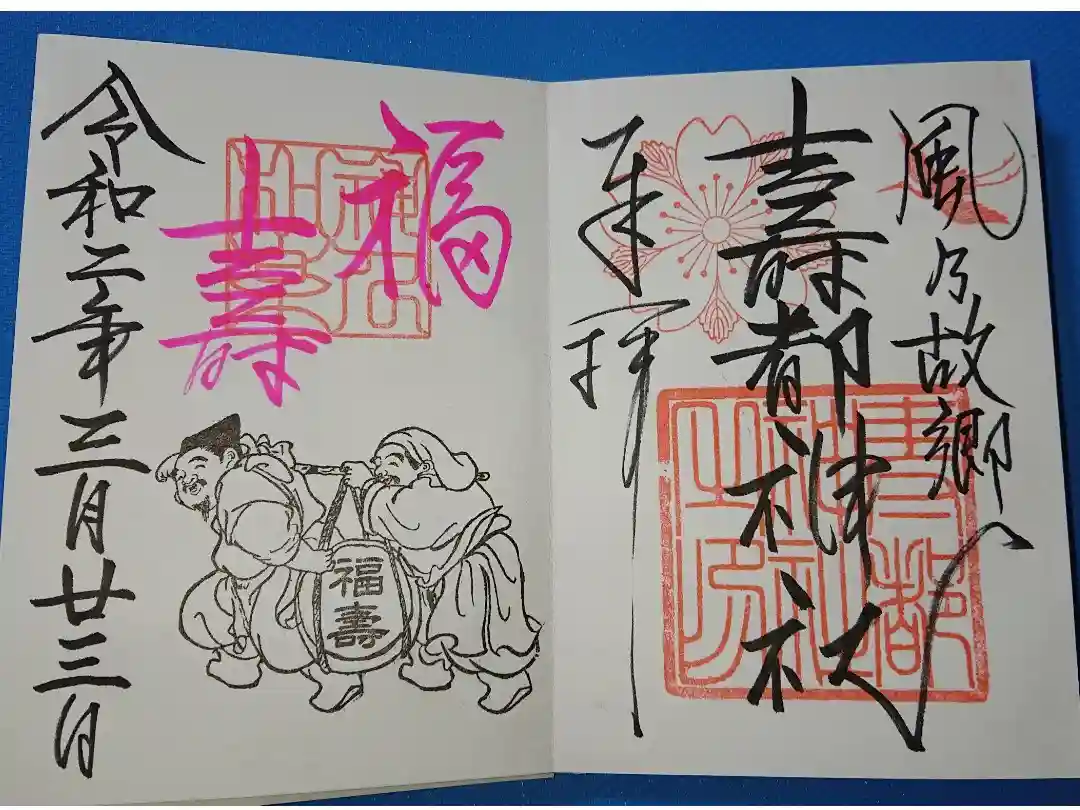 風乃故郷へ
壽都神社
奉拝
福
壽
福壽
令和二年三月廿三日
壽都
神社
之印